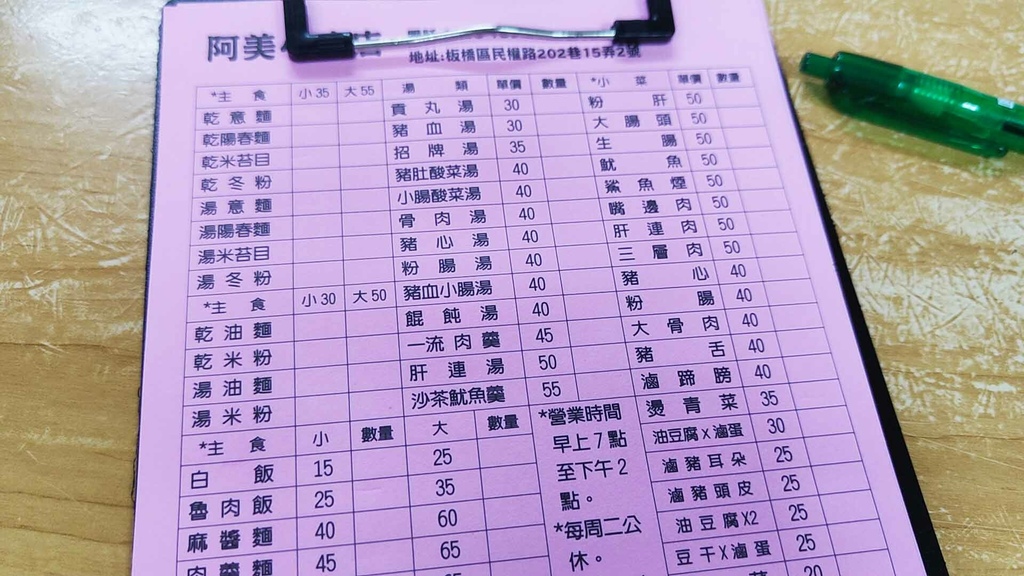 阿美
地址:板橋區民權路202巷15弄2號
*主食 小35 大55 湯類 單價 數量 *小菜 單價 數量
乾意麵 貢丸湯 30 粉肝 50
乾陽春麵 豬血湯 30 大腸頭 50
乾米苔目 招牌湯 35 生腸 50
乾冬粉 豬肚酸菜湯 40 魷魚 50
湯意麵 小腸酸菜湯 40 鯊魚煙 50
湯陽春麵 骨肉湯 40 嘴邊肉 50
湯米苔目 豬心湯 40 肝連肉 50
湯冬粉 粉腸湯 40 三層肉 50
*主食 小30 大50 豬血小腸湯 40 豬心 40
乾油麵 餛飩湯 40 粉腸 40
乾米粉 一流肉羹 45 大骨肉 40
湯油麵 肝連湯 50 豬舌 40
湯米粉 沙茶魷魚羹 55 滷蹄膀 40
*主食 小 數量 大 數量 燙青菜 35
白飯 15 25 油豆腐x滷蛋 30
魯肉飯 25 35 滷豬耳朵 25
麻醬麵 40 60 滷豬頭皮 25
肉羹麵 45 65 油豆腐X2 25
豆干X滷蛋 25
20
*營業時間
早上7點
至下午2
點。
*每周二公
休。